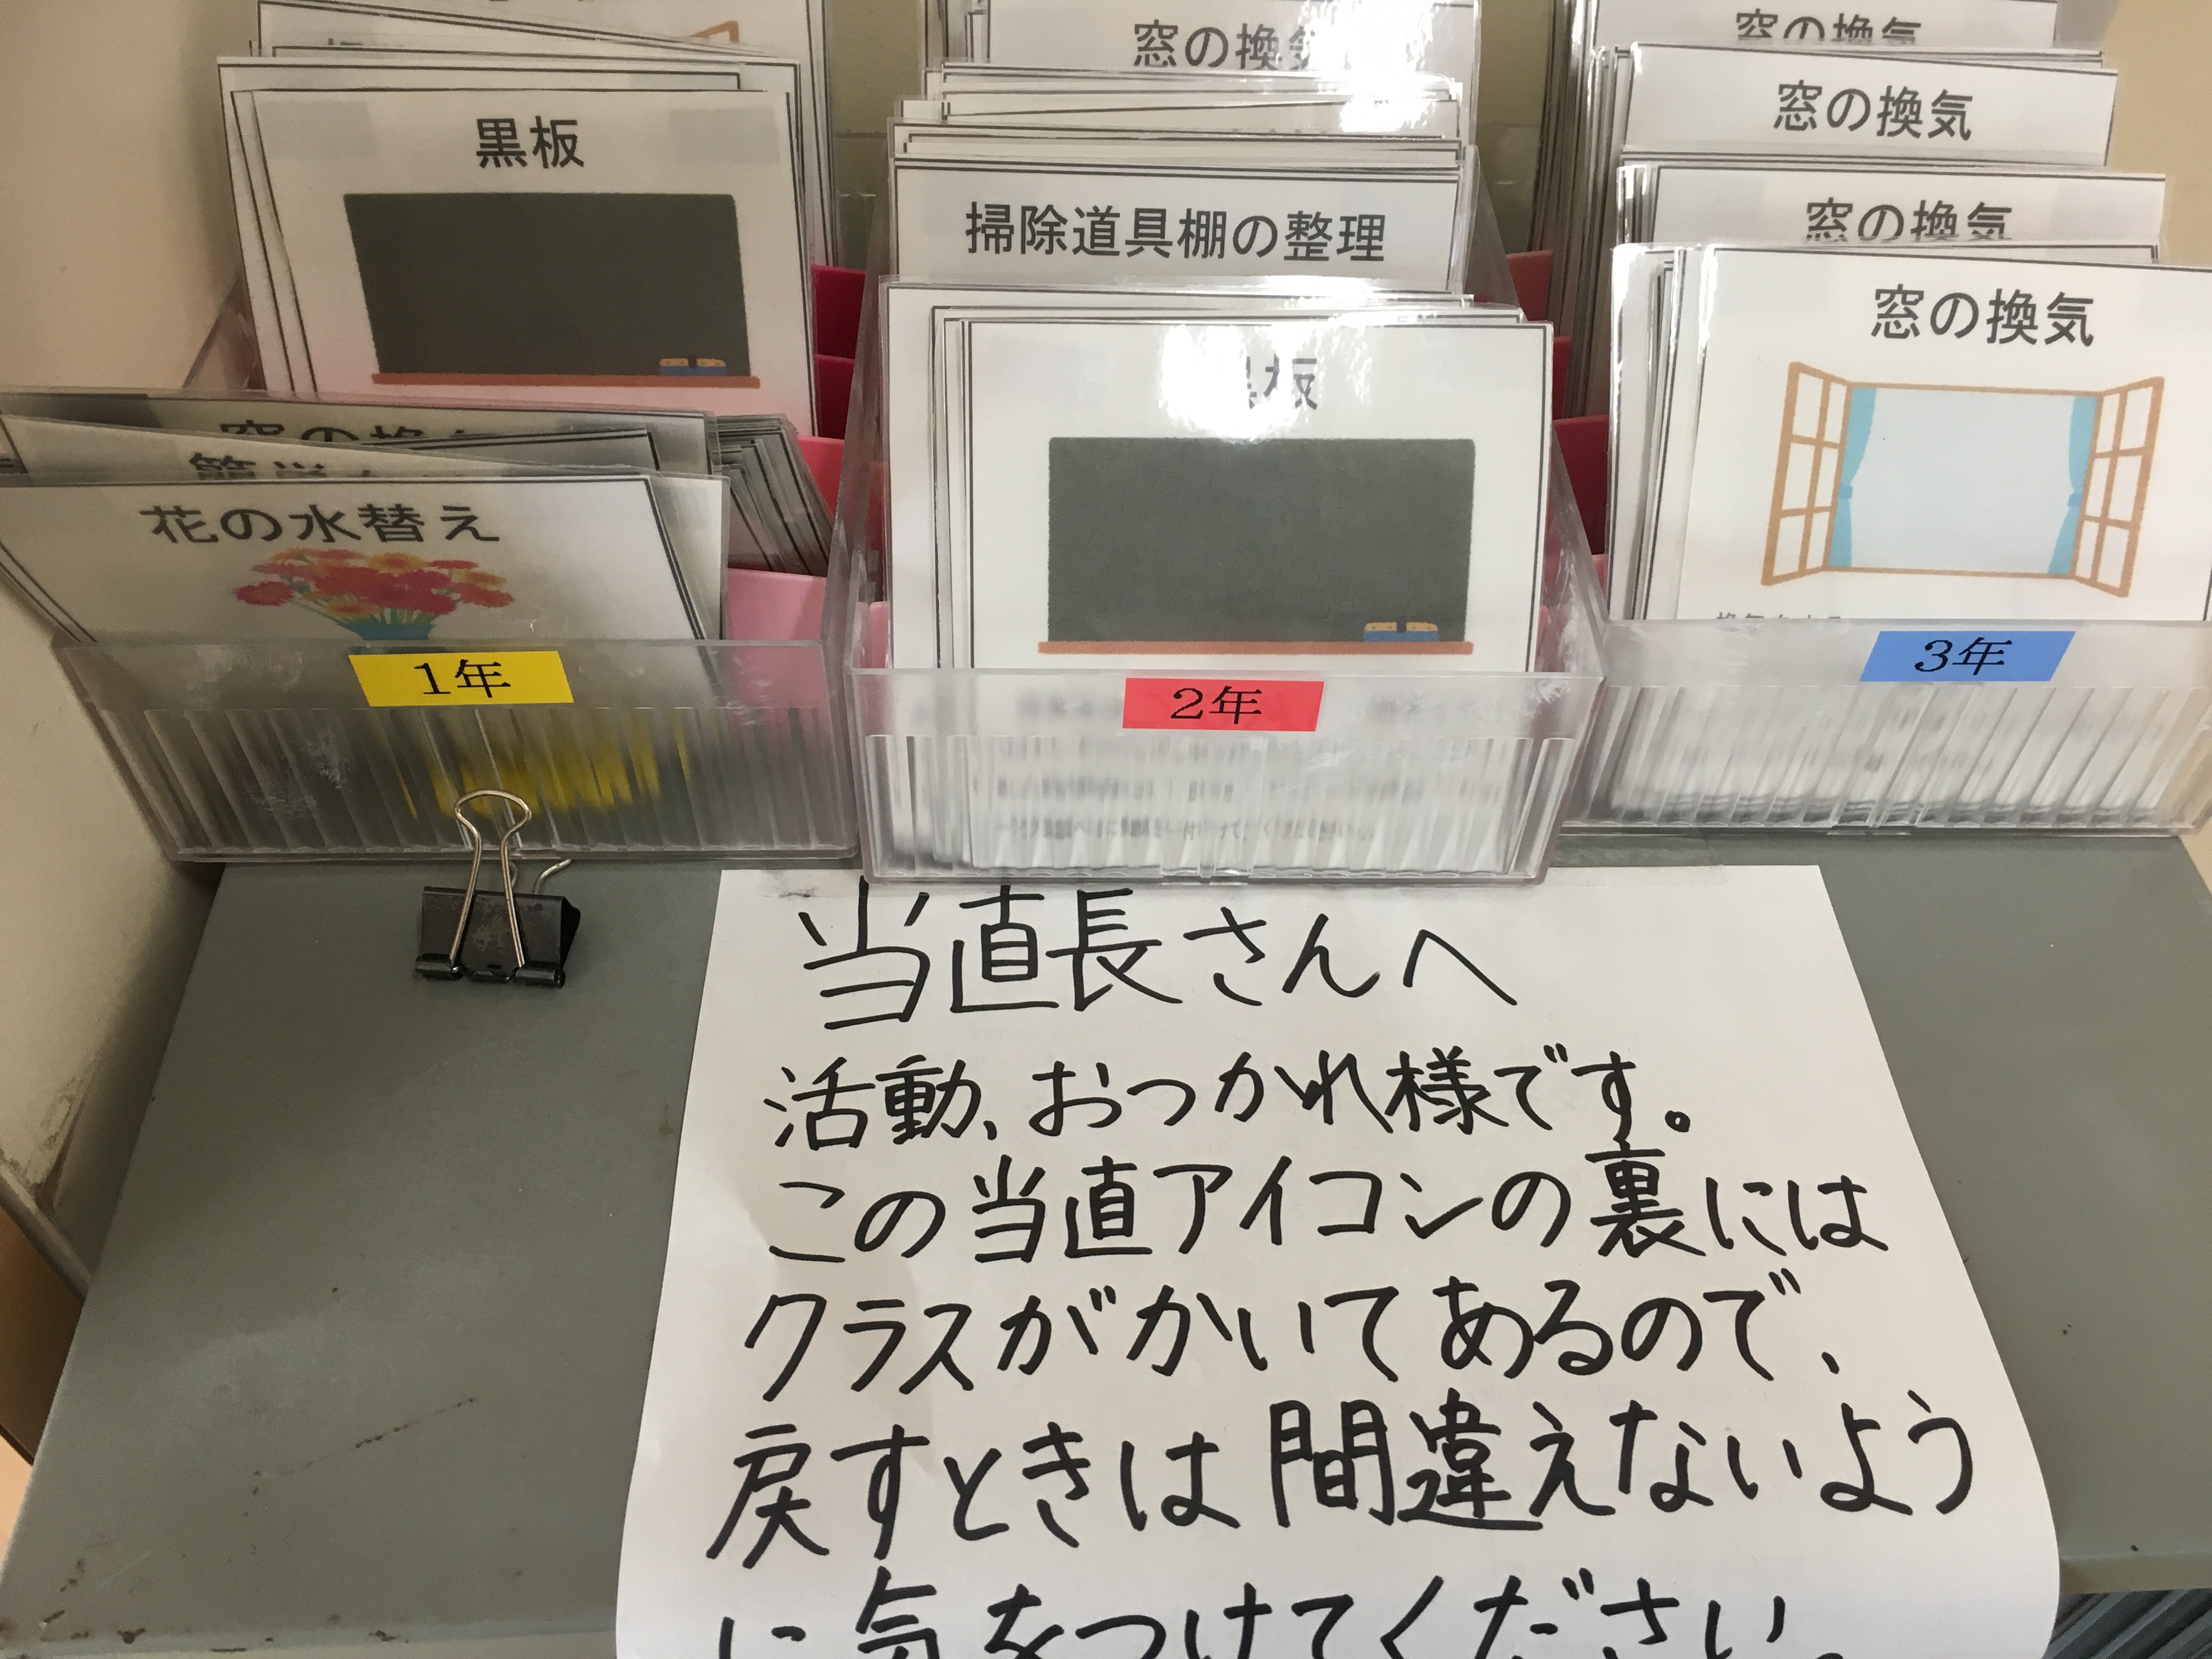 窓の換気
窓の換気
窓の換気
黒板
掃除道具棚の整理
窓の換気
窓の換気
黒板
花の水替え
1年
2年
3年
当直長さんへ
活動、おつかれ様です。
この当直アイコンの裏には
クラスがかいてあるので、
戻すときは間違えないよう
に気をつけてください。